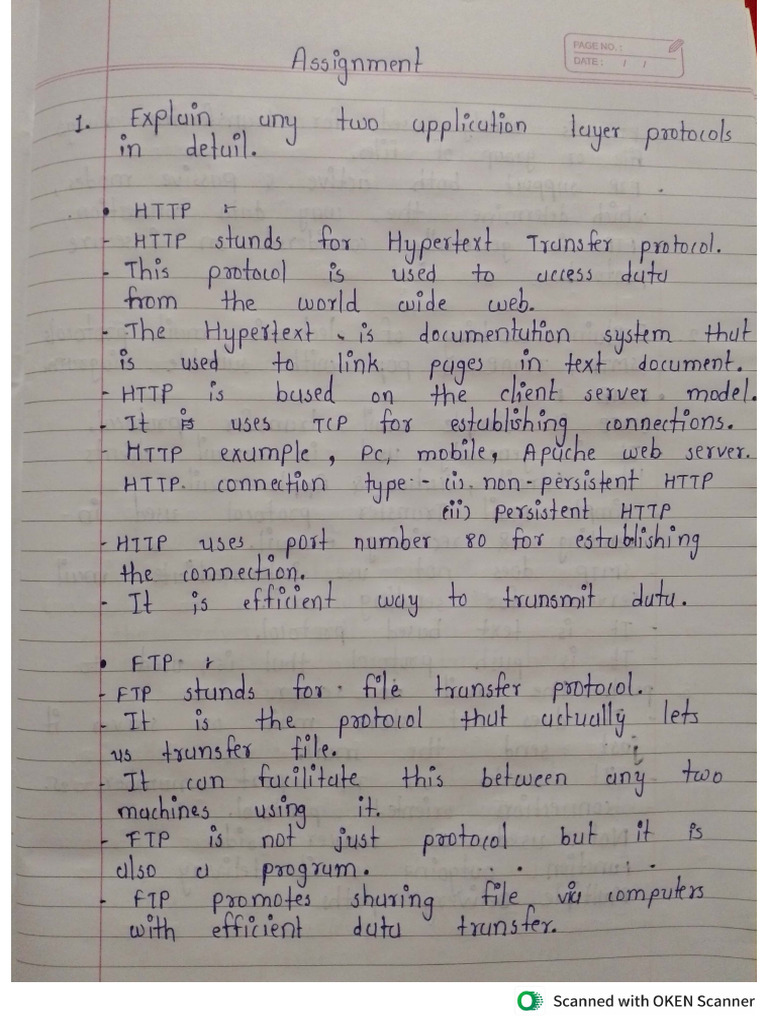 PAGE NO. :
DATE : / /
Assignment
1. Explain any two application layer protocols
in detail.
• HTTP :-
- HTTP stands for Hypertext Transfer protocol.
- This protocol is used to access data
from the world wide web.
- The Hypertext is documentation system that
is used to link pages in text document.
- HTTP is based on the client server model.
- It is uses TCP for establishing connections.
- HTTP example, PC, mobile, Apache web server.
HTTP connection type - (i) non-persistent HTTP
(ii) Persistent HTTP
- HTTP uses port number 80 for establishing
the connection.
- It is efficient way to transmit data.
• FTP :-
- FTP stands for file transfer protocol.
- It is the protocol that actually lets
us transfer file.
- It can facilitate this between any two
machines using it.
- FTP is not just protocol but it is
also a program.
- FTP promotes sharing file via computers
with efficient data transfer.
Scanned with OKEN Scanner